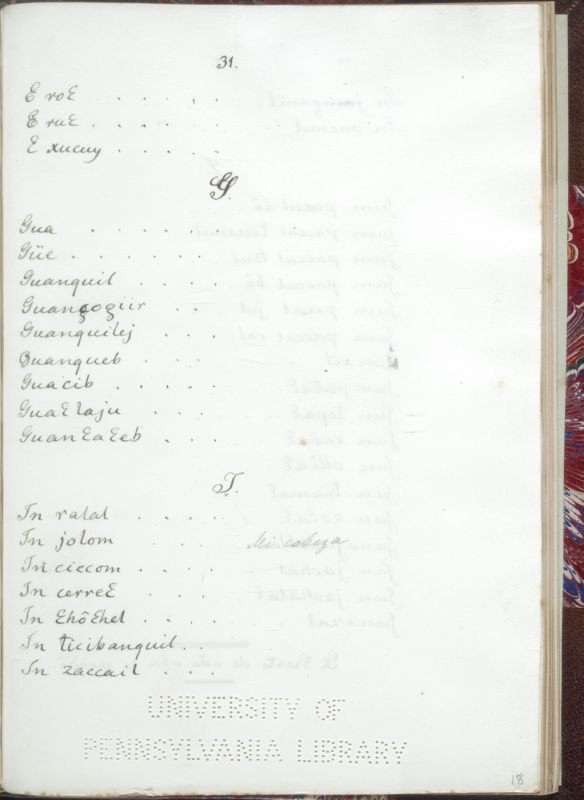 31.
E roE . . . . . .
E ruE . . . . .
E xucuy . . . . .
G.
Gua . . . . .
Güe . . . . . .
Guanquil . . . .
Guançoguir . . .
Guanquilej . . .
Guanqueb . . .
Guacib . . . . .
GuaElaju . . .
GuanEaEeb . . . .
I.
In ralal . . . .
In jolom . . . Mi cabeza
In ciccom . . . .
In cerreE . . .
In EhôEhel . . . .
In ticibanquil . .
In zaccail . . .
UNIVERSITY OF
PENNSYLVANIA LIBRARY
18